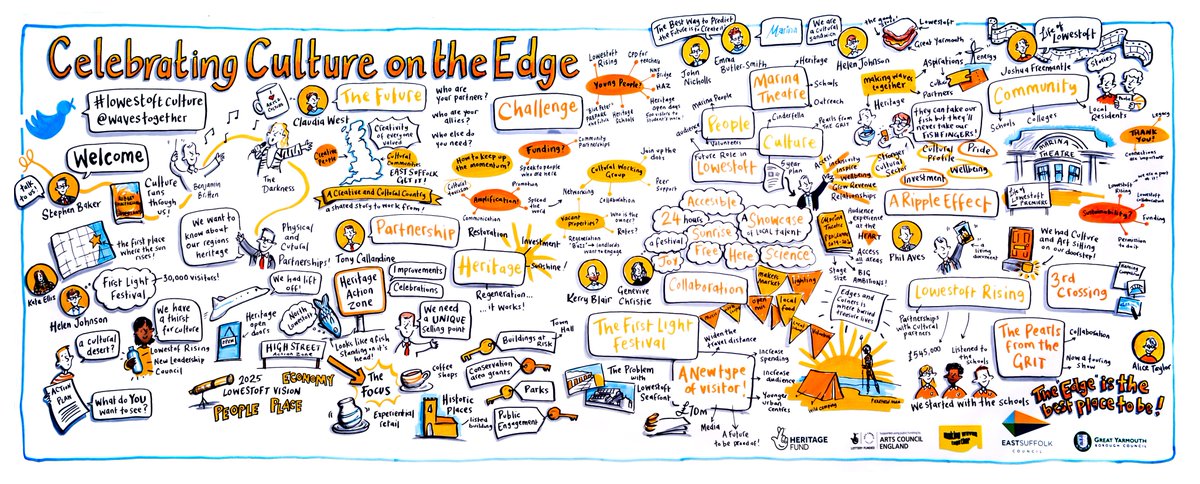 Celebrating Culture on the Edge
#lowestoft culture
@wavestogether
Welcome
talk to us!
Stephen Baker
Culture
runs
through
us!
Benjamin
Britten
The
Darkness
the first place
where the sun
rises!
We want to
know about
our regions
heritage
Physical
and
Cultural
Partnerships!
Kate Ellis
First Light
Festival
30,000 visitors!
Helen Johnson
We have
a thirst
for culture
a cultural
desert?
Lowestoft Rising
New Leadership
Council
ACTION
PLAN
What do YOU
want to see?
Claudia West
The Future
Creativity
of everyone
valued
Creative
People
Cultural
Communities
EAST SUFFOLK
GET IT!
A Creative and Cultural Country
a shared story to work from!
Who are
your partners?
Who are your
allies?
Who else do
you need?
Partnership
Tony Callandine
We had
lift off!
North
Lowestoft
Heritage
open
doors
OPEN
Heritage
Action
Zone
Improvements
Celebrations
We need
a UNIQUE
selling point
Looks like a Fish
standing on it's
head!
HIGH STREET
Action Zone
2025
LOWESTOFT VISION
ECONOMY
PEOPLE
PLACE
The
FOCUS
Coffee
shops
Experiential
retail
Historic
Places
listed
building
Restoration
Heritage
Investment
Sunshine!
Regeneration...
...it works!
Buildings at
Risk
Town
Hall
Conservation
area grants
Parks
Public
Engagement
Challenge
Lowestoft
Rising
CPD for
teachers
Young People?
NNF
Bridge
HAZ
Heritage
open days
Heritage
Schools
Community
Partnerships
How to keep up
the momentum?
Funding?
Speak to people
who are here
Join up the
dots
Cultural
tourism
Promotion
Amplification?
Spread
the
word
Communication
Networking
Cultural Working
Group
Collaboration
Peer
Support
Vacant
properties?
Who is the
owner?
Roles?
Regeneration
"Buzz" → landlords
want to engage
The Best Way to Predict
the Future is to Create it
John
Nicholls
Emma
Butler-Smith
Marina
Marina
Theatre
Heritage
Schools
Outreach
Marina People
People
audience
Volunteers
Cinderella
Culture
Pearls from
the GRIT
Future Role in
Lowestoft
5 year
Plan
Accessible
24 hours
a Festival
Sunrise
A Showcase
of local talent
Joy
Free
Here
Science
Kerry Blair
Genevive
Christie
Collaboration
makers
market
lighting
music
open
local
food
Local
Volunteer
The First Light
Festival
Widen the
travel distance
A New type
of visitor!
Increase
spending
Increase
audience
Younger
urban
Centres
The Problem
with
Lowestoft
Seafront
£10m
Media
A Future
to be proud of!
We are
a cultural
sandwich
Helen Johnson
Lowestoft
Great Yarmouth
making waves
together
Aspirations
Partners
energy
Heritage
they can take our
fish but they'll
never take our
FISH FINGERS!
Stronger
Cultural
Sector
Cultural
Profile
Pride
Investment
Wellbeing
Inclusivity
Inspire
Wellbeing
Grow Revenue
Relationships
Audience
experience at
the HEART
Access
all
areas
Stage
Size
BIG
AMBITIONS!
Edges and
Corners is
where buried
treasure lives
wild camping
A Ripple Effect
Phil Aves
a living
document
We had Culture
and Art sitting
on our doorstep!
Lowestoft Rising
Partnerships
with Cultural
partners
$545,000
Listened to
the
Schools
We started with the schools
Isle of
Lowestoft
Joshua Freemantle
Stories
Community
Schools
Colleges
Local
Residents
MARINA
THEATRE
Isle of
Lowestoft
PREMIERE
Legacy
THANK
YOU!
Connections
are important
Lowestoft
Rising
Lowestoft
Collaboration
Sustainability?
Funding
Permission to
do it
3rd
Crossing
The Pearls
from the
GRIT
Collaboration
Now a touring
Show
Alice Taylor
The Edge is the
best place to be!
HERITAGE
FUND
LOTTERY FUNDED
ARTS COUNCIL
ENGLAND
making waves
together
EASTSUFFOLK
COUNCIL
GREAT YARMOUTH
BOROUGH COUNCIL